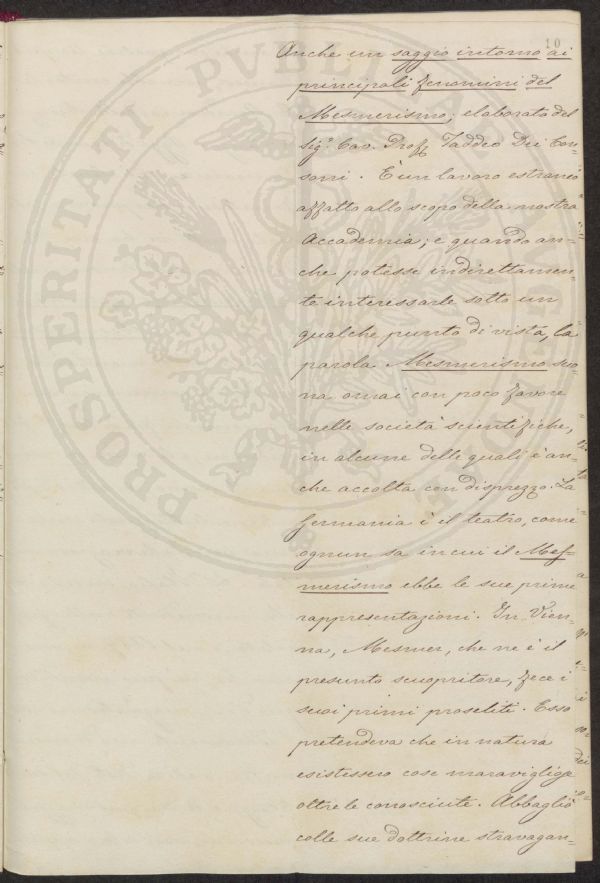 10
Anche un saggio intorno ai
principali fenomini del
Mesmerismo; elaborato del
Sig.r Cav. Prof. Taddeo Dei Con-
soni. È un lavoro estraneo
affatto allo scopo della nostra
Accademia; e quando an-
che potesse indirettamen-
te interessarle sotto un
qualche punto di vista, la
parola Mesmerismo suo-
na omai con poco favore
nelle società scientifiche,
in alcune delle quali è an-
che accolta con disprezzo. La
Germania è il teatro, come
ognun sa in cui il Mes-
merismo ebbe le sue prime
rappresentazioni. In Vien-
na, Mesmer, che ne è il
presunto scuopritore, fece i
suoi primi proseliti. Esso
pretendeva che in natura
esistessero cose maravigliose
oltre le conosciute. Abbagliò
colle sue dottrine stravagan-
PROSPERITATI PUBLICAE AUGENDAE